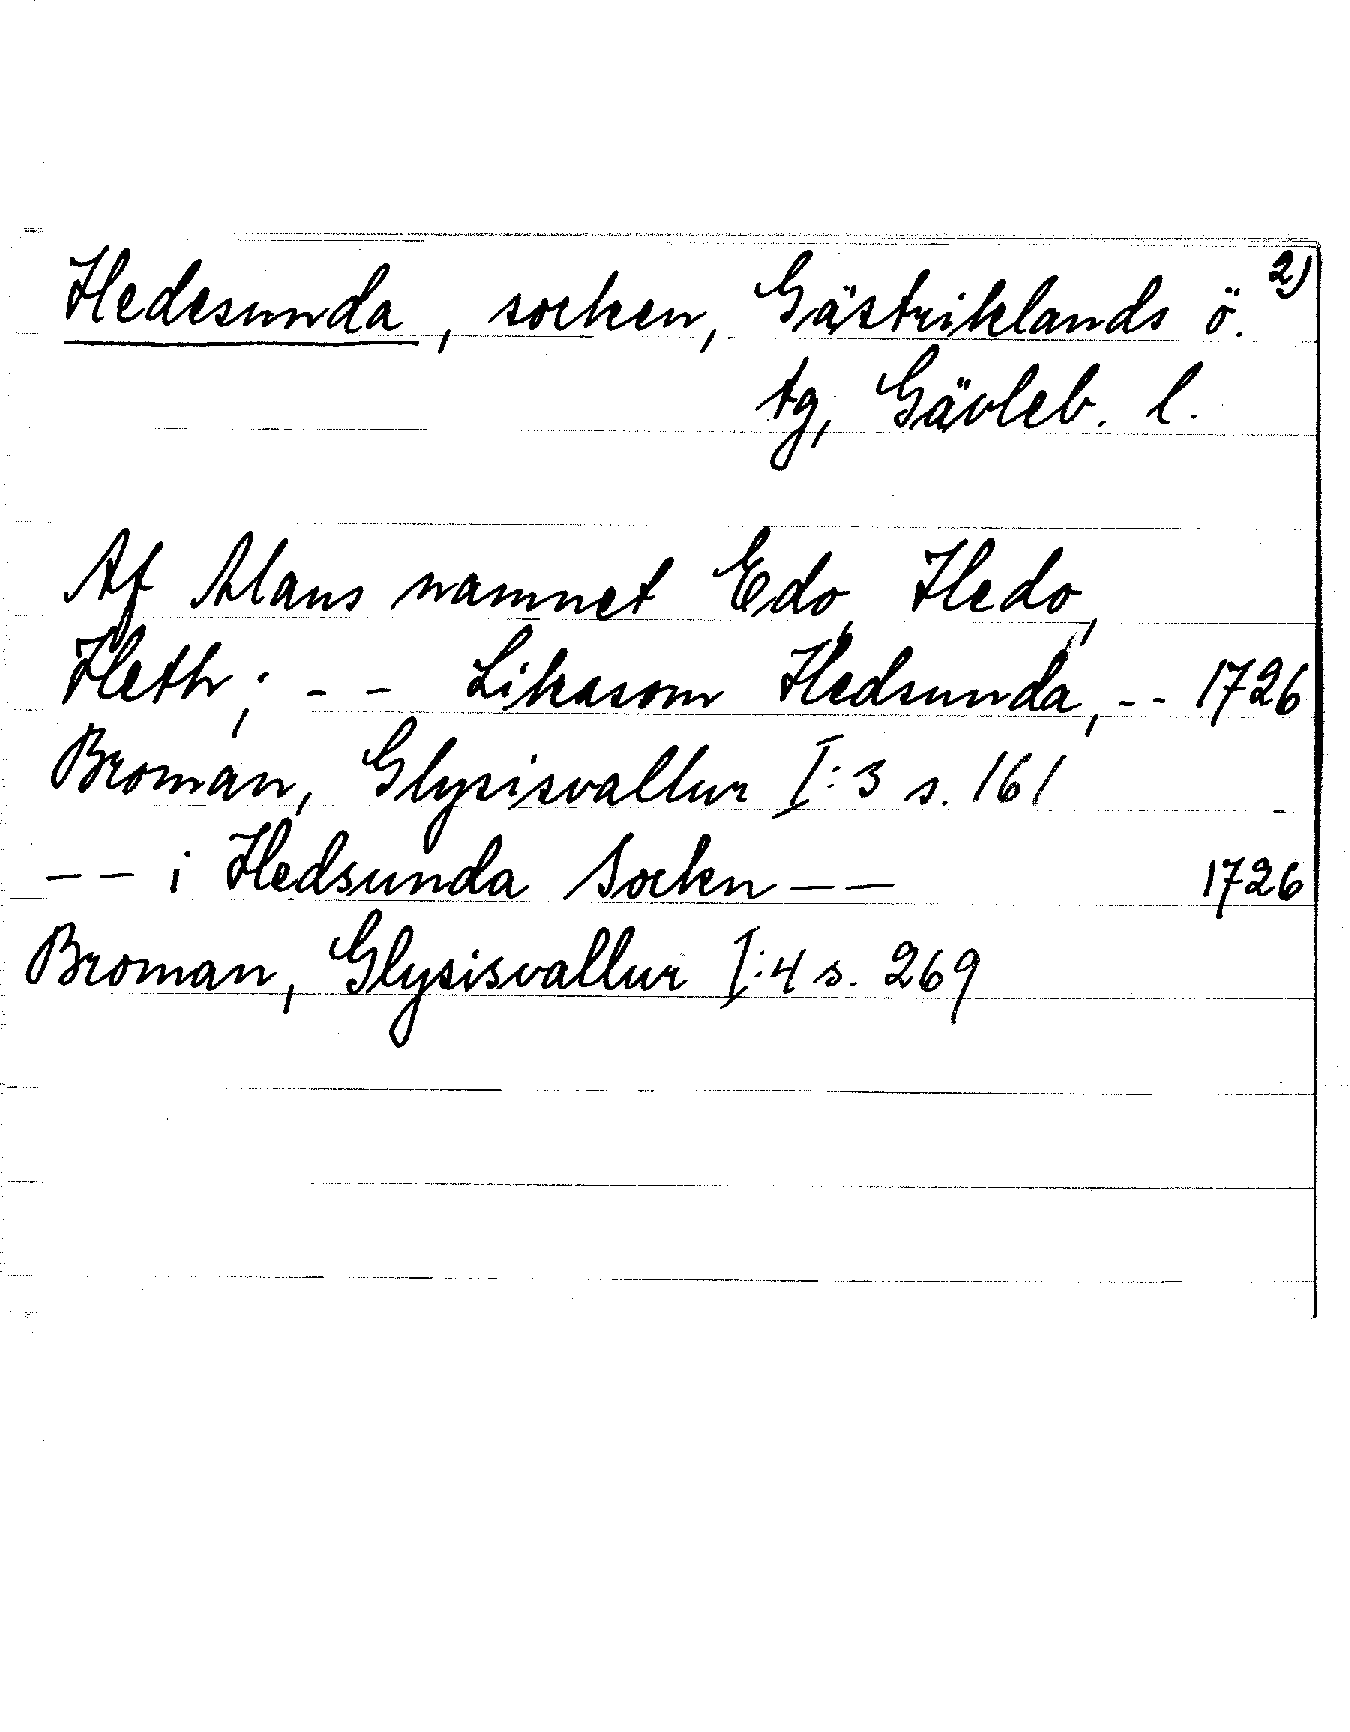 Hedesunda, socken, Gästriklands ö. 2)
tg, Gävleb. l.
Af Mans namnet Edo, Hedo,
Heth; -- Likasom Hedsunda, -- 1726
Broman, Glysisvallur I:3 s. 161
-- i Hedsunda Socken -- 1726
Broman, Glysisvallur I:4 s. 269